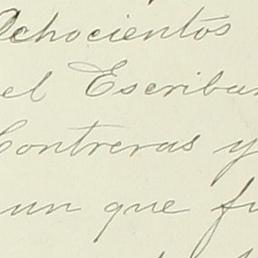 Ochocientos
el Escriban
Contreras y
un que fu